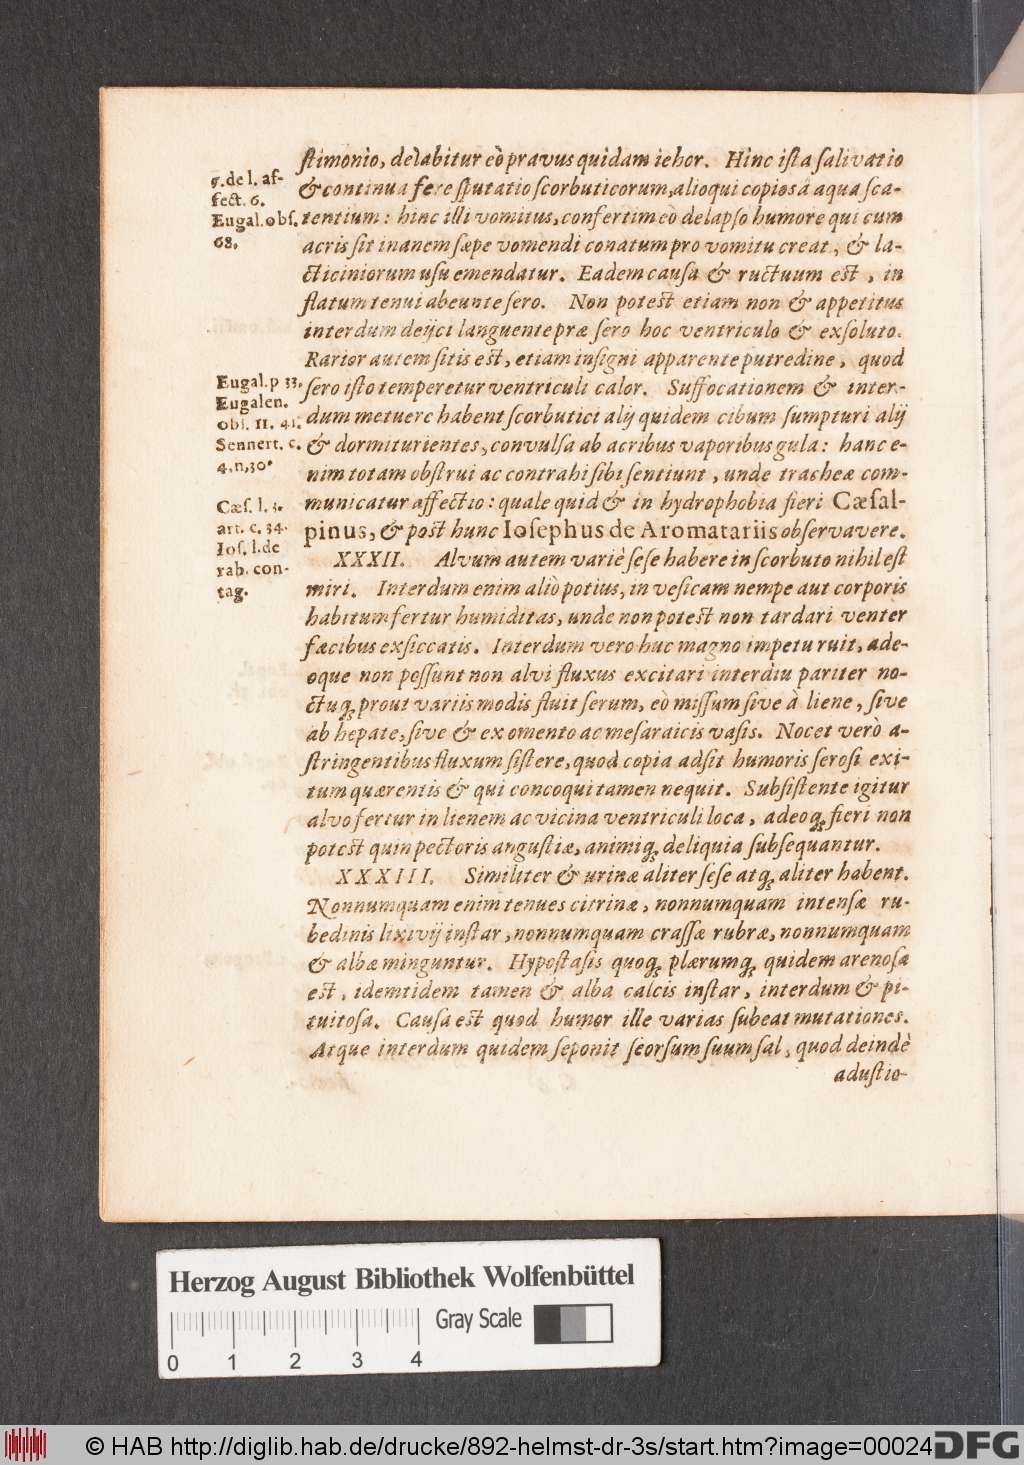 ſtimonio, delabitur eò pravus quidam iehor. Hinc iſta ſalivatio
& continua fere ſputatio ſcorbuticorum, alioqui copiosâ aqua ſca-
tentium: hinc illi vomitus, confertim eò delapſo humore qui cum
acris ſit inanem ſæpe vomendi conatum pro vomitu creat, & la-
cticiniorum uſu emendatur. Eadem cauſa & ructuum est, in
flatum tenui abeunte ſero. Non potest etiam non & appetitus
interdum deijci languente præ ſero hoc ventriculo & exſoluto.
Rarior autem ſitis est, etiam inſigni apparente putredine, quod
ſero iſto temperetur ventriculi calor. Suffocationem & inter-
dum metuere habent ſcorbutici alij quidem cibum ſumpturi alij
& dormiturientes, convulſa ab acribus vaporibus gula: hanc e-
nim totam obſtrui ac contrahi ſibi ſentiunt, unde tracheæ com-
municatur affectio: quale quid & in hydrophobia fieri Cæſal-
pinus, & post hunc Ioſephus de Aromatariis obſervavere.
XXXII. Alvum autem variè ſeſe habere in ſcorbuto nihil eſt
miri. Interdum enim aliò potius, in veſicam nempe aut corporis
habitum fertur humiditas, unde non potest non tardari venter
fæcibus exſiccatis. Interdum vero huc magno impetu ruit, ade-
oque non poſſunt non alvi fluxus excitari interdiu pariter no-
ctuq; prout variis modis fluit ſerum, eò miſſum ſive à liene, ſive
ab hepate, ſive & ex omento ac meſaraicis vaſis. Nocet verò a-
ſtringentibus fluxum ſiſtere, quod copia adſit humoris ſeroſi exi-
tum quærentis & qui concoqui tamen nequit. Subſiſtente igitur
alvo fertur in lienem ac vicina ventriculi loca, adeoq; fieri non
potest quin pectoris anguſtiæ, animiq; deliquia ſubſequantur.
XXXIII. Similiter & urinæ aliter ſeſe atq; aliter habent.
Nonnumquam enim tenues citrinæ, nonnumquam intenſæ ru-
bedinis lixivij inſtar, nonnumquam craſſæ rubræ, nonnumquam
& albæ minguntur. Hypoſtaſis quoq; plærumq; quidem arenoſa
est, idemtidem tamen & alba calcis inſtar, interdum & pi-
tuitoſa. Cauſa est quod humor ille varias ſubeat mutationes.
Atque interdum quidem ſeponit ſeorſum ſuum ſal, quod deindè
aduſtio-
5. de l. af-
fect. 6.
Eugal. obſ.
68.
Eugal. p 33.
Eugalen.
obſ. 11. 41.
Sennert. c.
4. n, 30.
Cæſ. l. 3.
art. c. 34.
Ioſ. l. de
rab. con-
tag.
Herzog August Bibliothek Wolfenbüttel
Gray Scale
0 1 2 3 4
© HAB http://diglib.hab.de/drucke/892-helmst-dr-3s/start.htm?image=00024
DFG